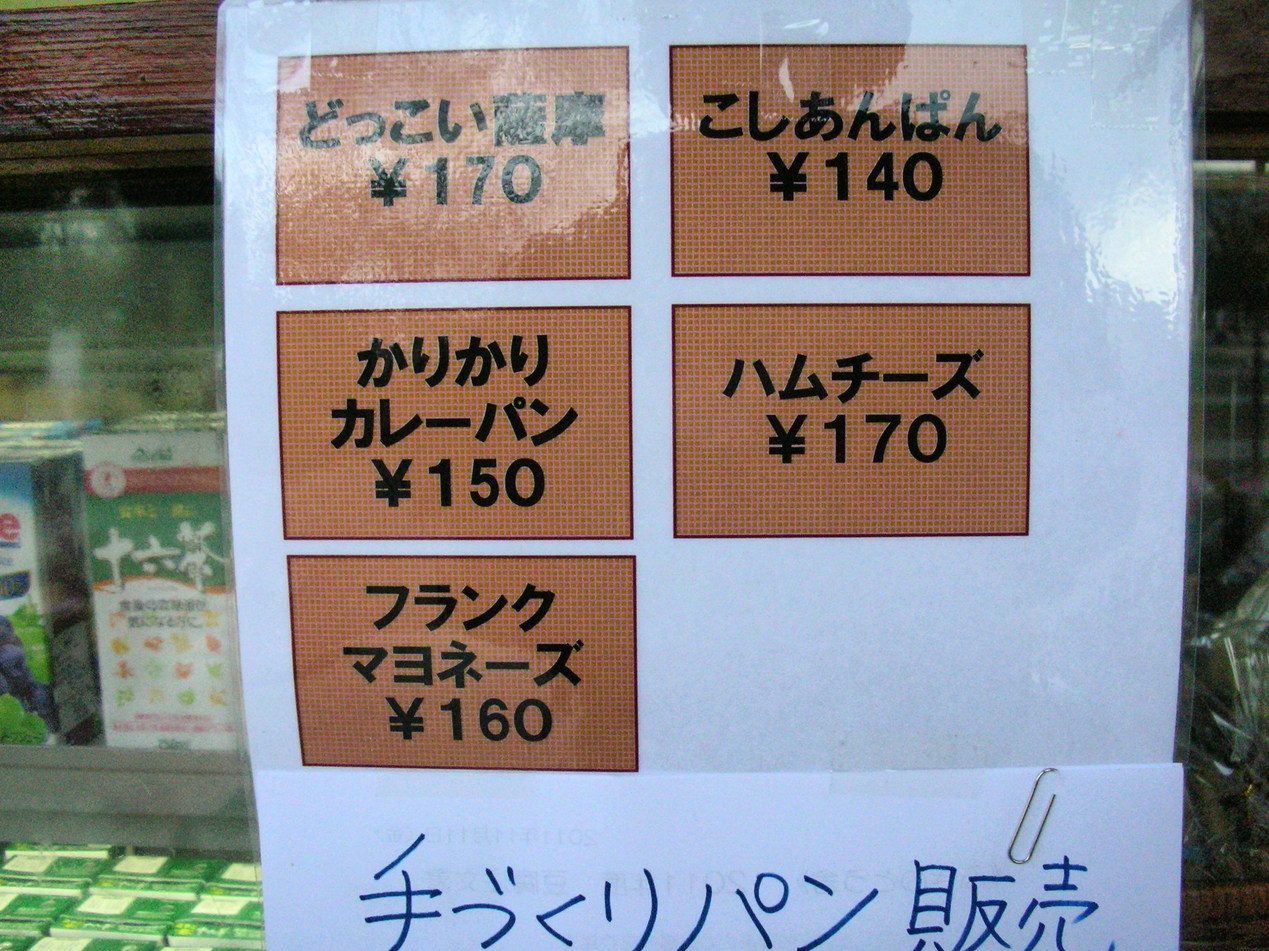 どっこい薩摩
¥170
こしあんぱん
¥140
かりかり
カレーパン
¥150
ハムチーズ
¥170
フランク
マヨネーズ
¥160
十六茶
手づくりパン販売